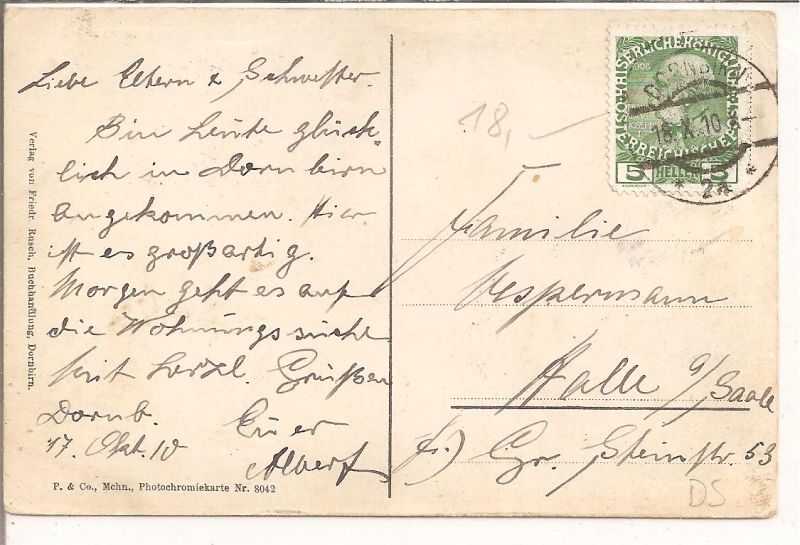 Liebe Eltern & Schwester.
Bin heute glück-
lich in Dornbirn
angekommen. Hier
ist es großartig.
Morgen geht es auf
die Wohnungssuche
Mit herzl. Grüßen
Dornb. Euer
17. Okt. 10 Albert
Verlag von Friedr. Rusch, Buchhandlung, Dornbirn.
P. & Co., Mchn., Photochromiekarte Nr. 8042
18,-
1908
5 HELLER 5
DORNBIRN
18.X.10
* 2a *
Familie
Vespermann
Halle a/Saale
Gr. Steinstr. 53
DS